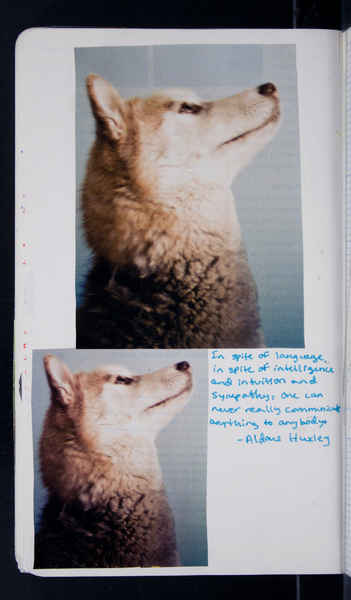 In spite of language,
in spite of intelligence
and intuition and
sympathy, one can
never really communicate
anything to anybody.
- Aldous Huxley